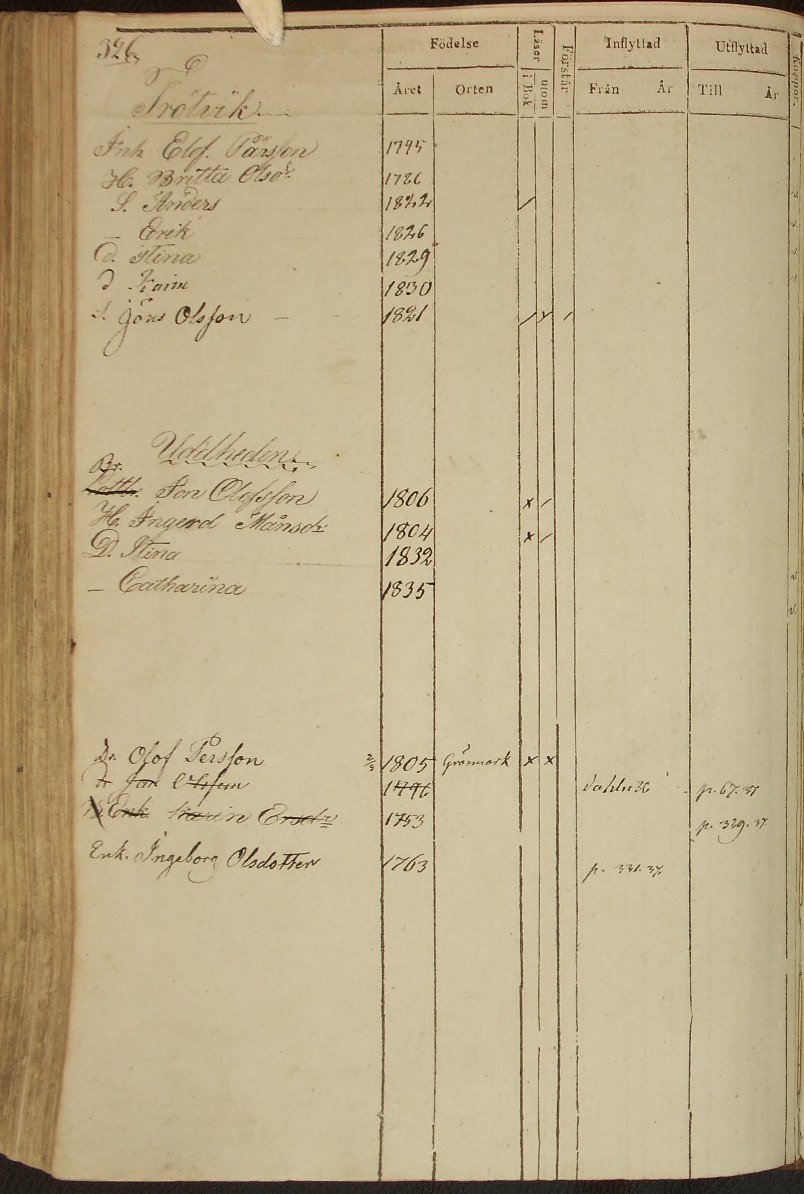 326
Födelse Läser Förstår Inflyttad Utflyttad Koppor.
Året Orten i Bok utom Från År Till År
Trötvik
Inh Elof. Pärsson 1795
H. Britta Olsdr 1786
S. Anders 1822 /
— Erik 1826
d. Stina 1829
d Karin 1830
S. Jöns Olsson — 1821 / x /
Uddheden
Br.
Jon Olofsson 1806 x /
H. Ingerd Månsdr 1804 x /
D. Stina 1832
— Catharina 1835
Dr. Olof Persson 1805 Gräsmark x x
dr Jan Olsson 1796 p. 67. 37
Enk Karin Ersdr 1753 p. 329. 37
Enk. Ingeborg Olsdotter 1763 p. 331. 37